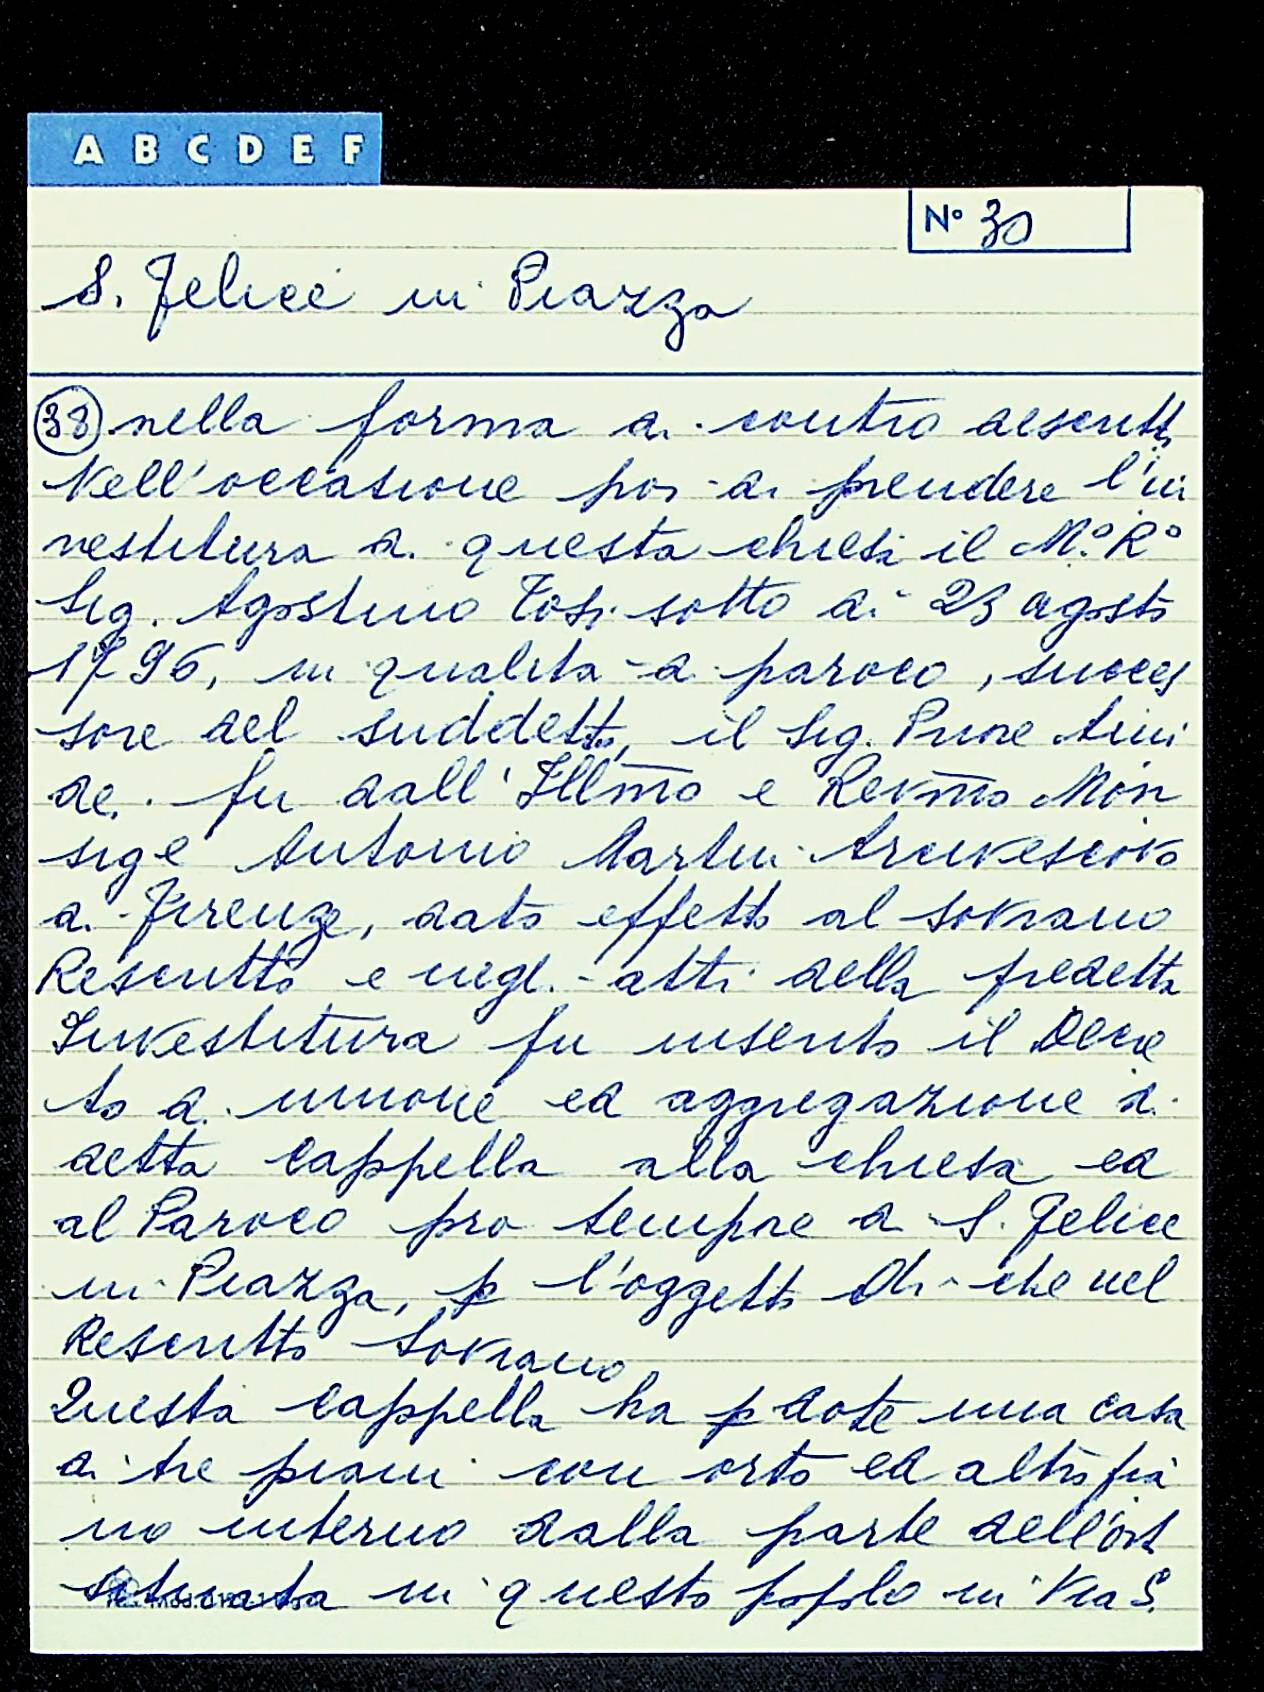 A B C D E F
N° 30
S. Felice in Piazza
38 nella forma di contro descritt
Nell'occasione poi di prendere l'in
vestitura di questa chiesa il M.° R°
Sig. Agostino Tosi sotto di 23 agosto
1796, in qualità di paroco, succes
sore del suddetto, il Sig. Priore
de. fu dall' Illmo e Revmo Mon
sige Antonio Martini Arcivescovo
di Firenze, dato effetto al sovrano
Rescritto e negl. atti della predetta
Investitura fu inserito il Decre
to di unione ed aggregazione di
detta Cappella alla chiesa ed
al Paroco pro tempore di S. Felice
in Piazza, p l'oggetto di che nel
Rescritto Sovrano
Questa cappella ha p dote una casa
di tre piani con orto ed altro pia
no interno dalla parte dell'ort
situata in questo popolo in Via S.